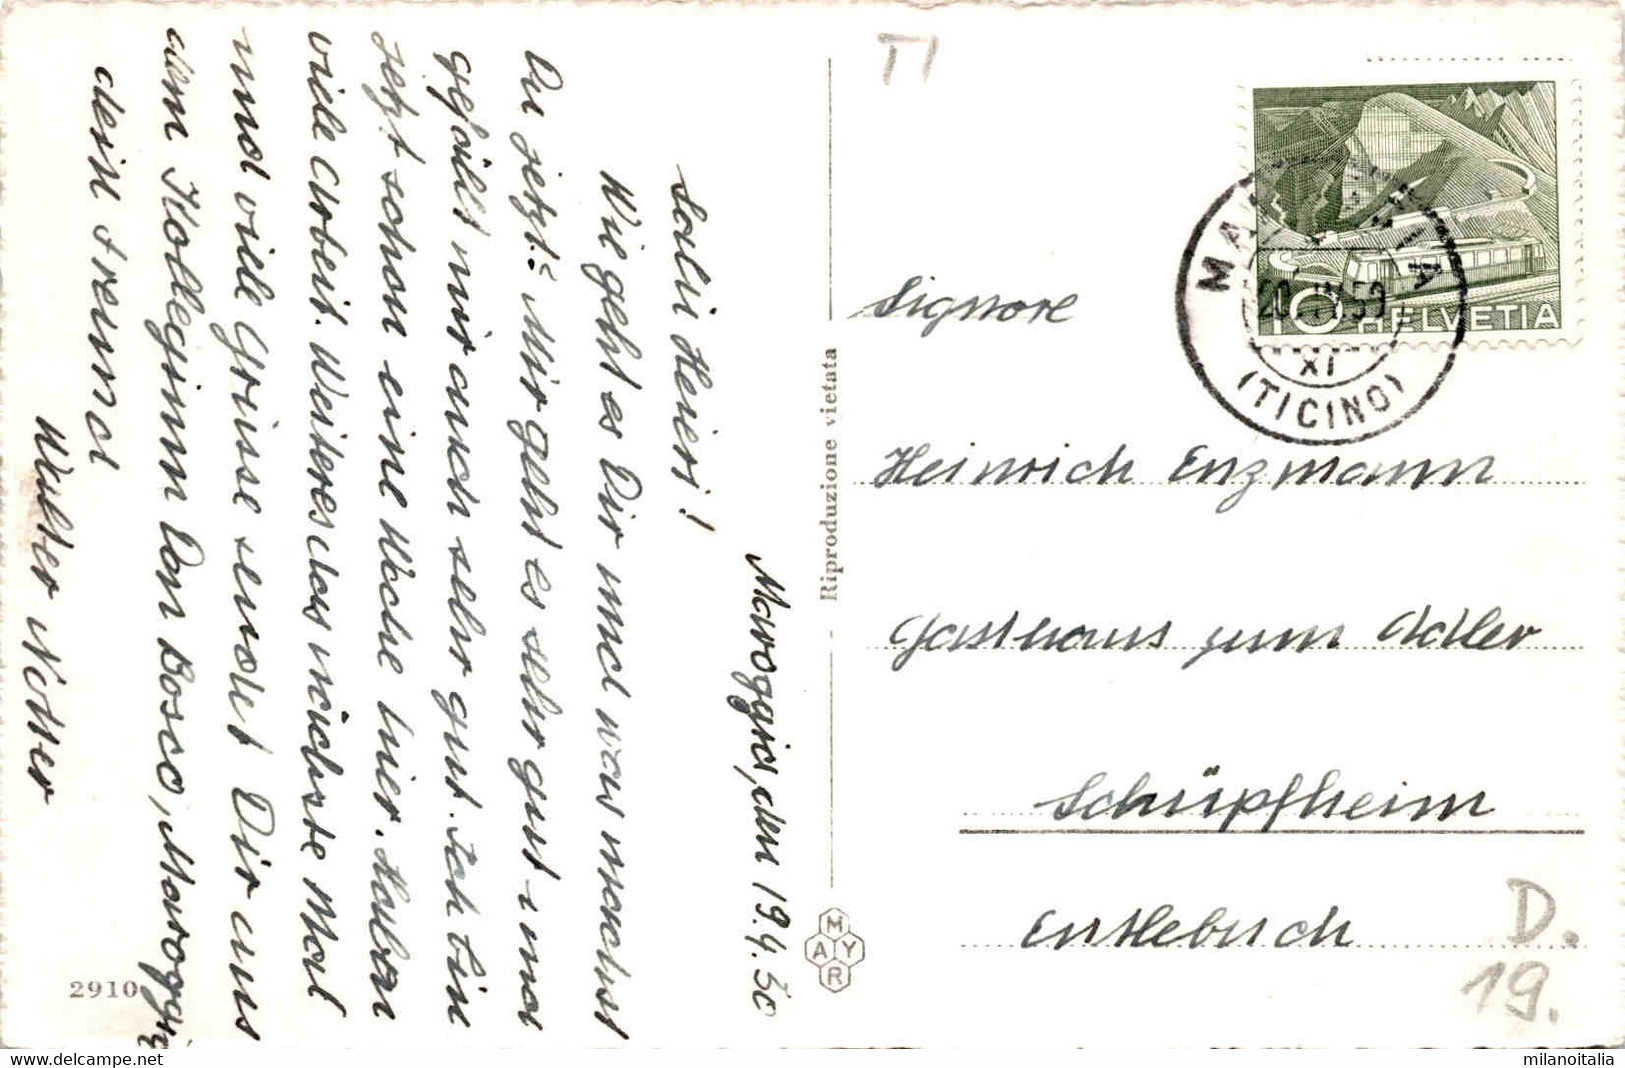 Maroggia, den 19.4.50
Salü Heiri!
Wie geht es Dir und was machst
Du jetzt? Mir geht es sehr gut und
gefällt mir auch sehr gut. Ich bin
jetzt schon eine Woche hier. Haben
viele Arbeit. Weiteres das nächste Mal
und viele Grüsse sendet Dir aus
dem Kollegium Don Bosco, Maroggia
dein Freund
Walter
2910
Riproduzione vietata
MAYR
TI
HELVETIA
10
(TICINO)
XI
Signore
Heinrich Enzmann
Gasthaus zum Adler
Schüpfheim
Entlebuch
D.
19.
milanoitalia
www.delcampe.net